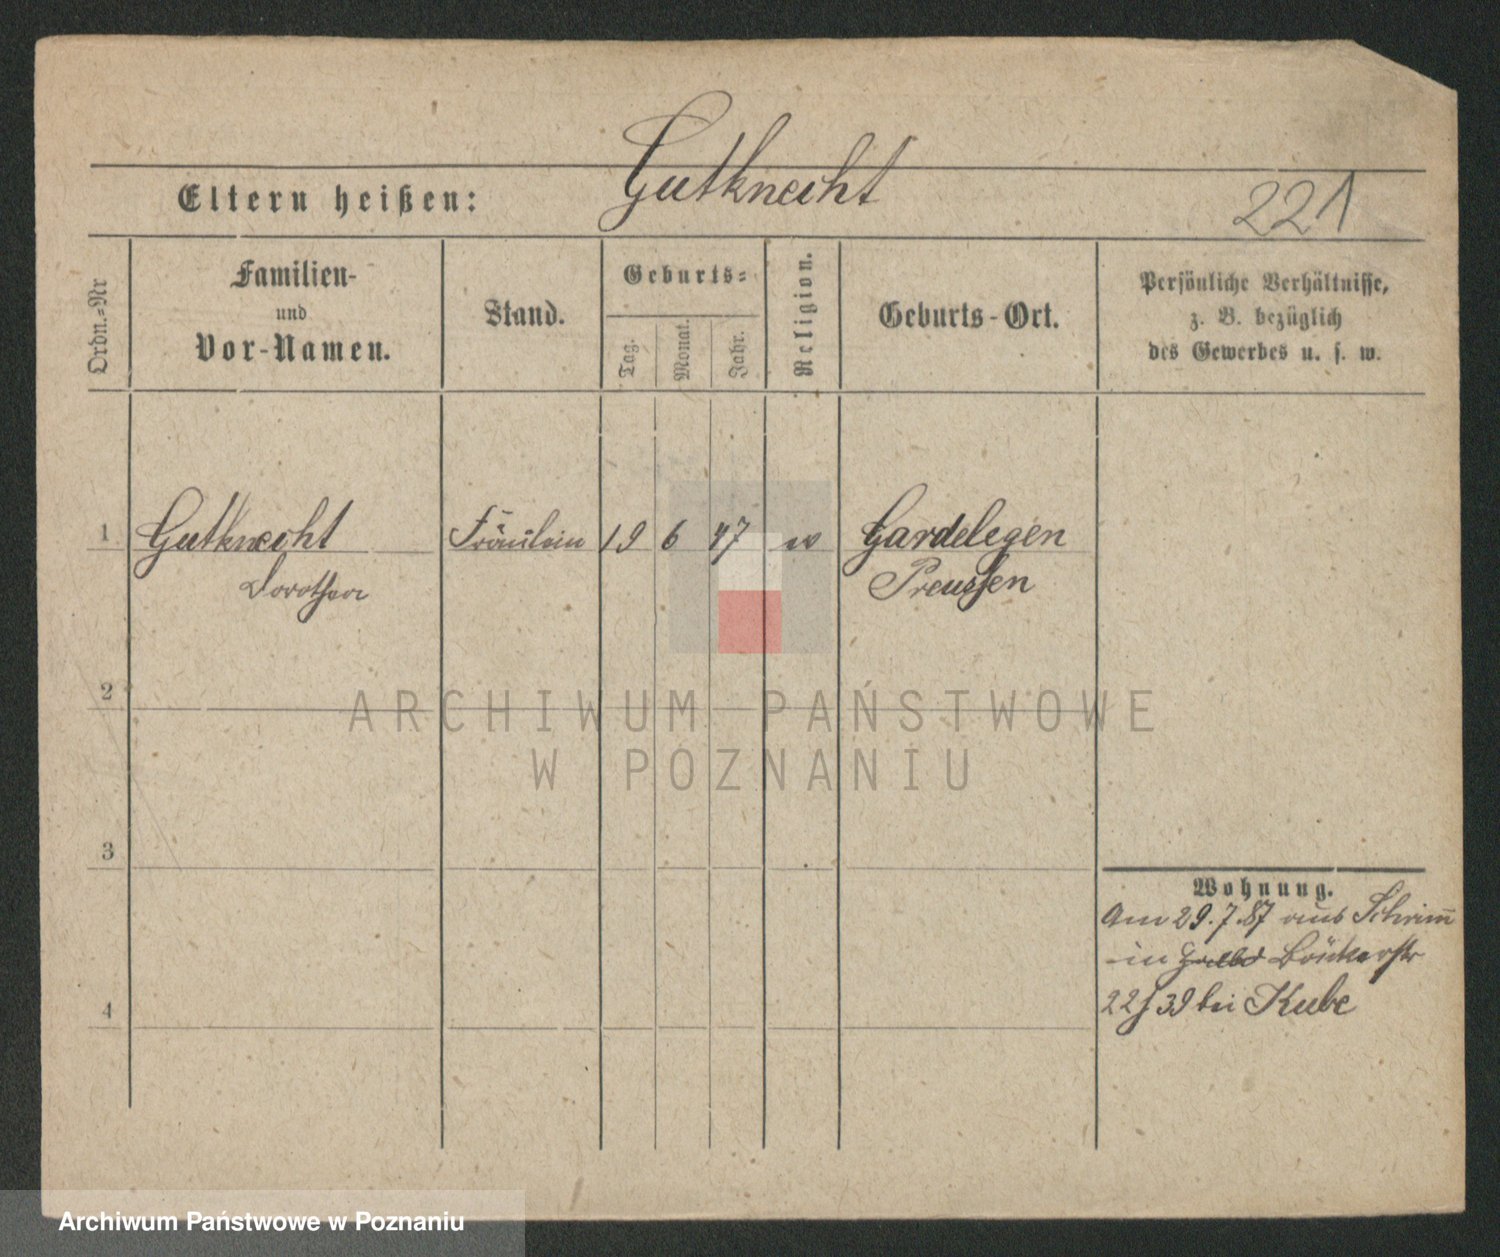 Gutknecht
Eltern heißen:
221
Ordn.=Nr
Familien-
und
Vor-Namen.
Stand.
Geburts=
Tag.
Monat.
Jahr.
Religion.
Geburts-Ort.
Persönliche Verhältnisse,
z. B. bezüglich
des Gewerbes u. s. w.
1
Gutknecht
Dorothea
Fräulein
19
6
47
Gardelegen
Preussen
2
ARCHIWUM PAŃSTWOWE
W POZNANIU
3
Wohnung.
Am 29.7.87 aus Schrimm
in Bäckerstr
22/39 bei Kube
4
Archiwum Państwowe w Poznaniu